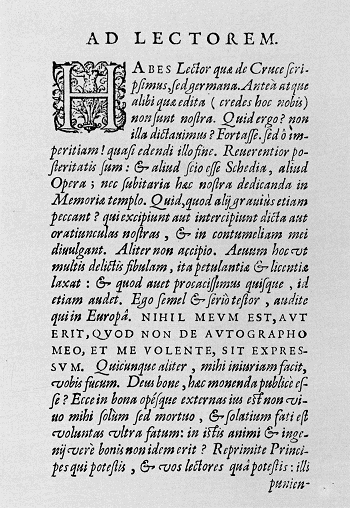 AD LECTOREM.
HABES Lector quæ de Cruce scri-
psimus, sed germana. Anteà atque
alibi quæ edita (credes hoc nobis)
non sunt nostra. Quid ergo? non
illa dictauimus? Fortasse. sed ô im-
peritiam! quasi edendi illo fine. Reuerentior po-
steritatis sum: & aliud scio esse Schedia, aliud
Opera; nec subitaria hæc nostra dedicanda in
Memoriæ templo. Quid, quod alij grauiùs etiam
peccant? qui excipiunt aut intercipiunt dicta aut
oratiunculas nostras, & in contumeliam mei
diuulgant. Aliter non accipio. Aeuum hoc vt
multis delictis fibulam, ita petulantiæ & licentiæ
laxat: & quod auet procacissimus quisque, id
etiam audet. Ego semel & seriò testor, audite
qui in Europâ. NIHIL MEVM EST, AVT
ERIT, QVOD NON DE AVTOGRAPHO
MEO, ET ME VOLENTE, SIT EXPRES-
SVM. Quicunque aliter, mihi iniuriam facit,
vobis fucum. Deus bone, hæc monenda publicè es-
se? Ecce in bona opésque externas ius est non vi-
uo mihi solùm sed mortuo, & solatium fati est
voluntas vltra fatum: in istis animi & inge-
nij verè bonis non idem erit? Reprimite Princi-
pes qui potestis, & vos lectores quâ potestis: illi
punien-